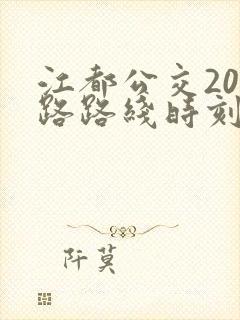 江都公交20
路路线时刻
阡莫